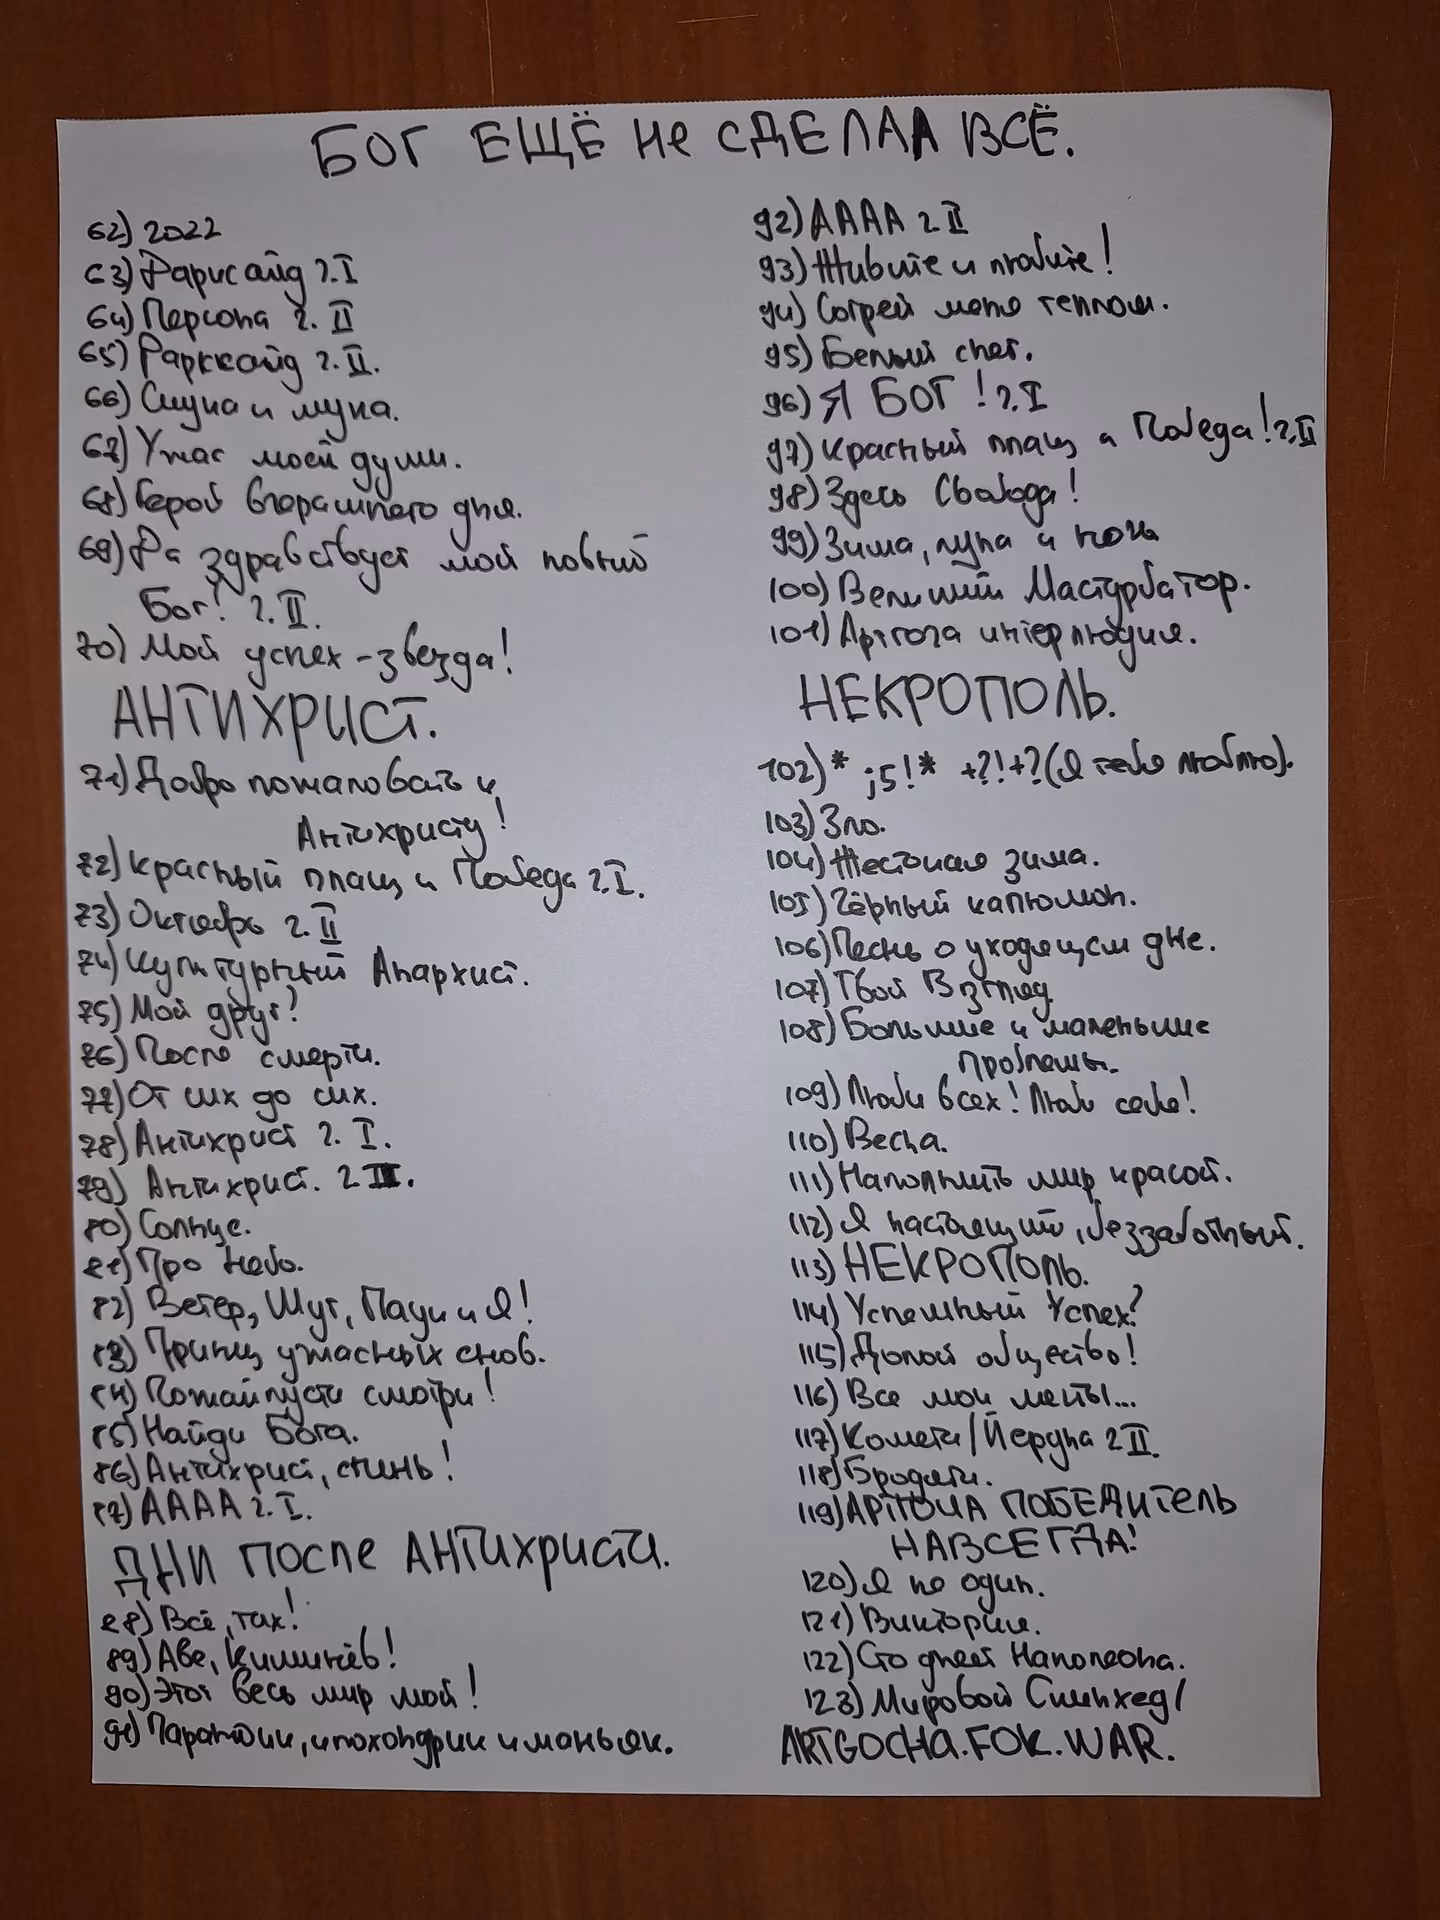 БОГ ЕЩЁ не СДЕЛАЛ ВСЁ.
62) 2022
63) Дарксайд г. I
64) Персона г. II
65) Дарксайд г. II.
66) Скука и мука.
67) Ужас моей души.
68) Герой вчерашнего дня.
69) Да здравствует мой новый
Бог! г. II.
70) Мой успех - звезда!
АНТИХРИСТ.
71) Добро пожаловать к
Антихристу!
72) Красный плащ и Победа г. I.
73) Октябрь г. II
74) Культурный Анархист.
75) Мой друг?
76) После смерти.
77) От сих до сих.
78) Антихрист г. I.
79) Антихрист. г II.
80) Солнце.
81) Про небо.
82) Ветер, Шут, Пауки и Я!
83) Принц ужасных снов.
84) Пожалуйста смотри!
85) Найди Бога.
86) Антихрист, сгинь!
87) АААА г. I.
ДНИ ПОСЛЕ АНТИХРИСТА.
88) Всё, так!
89) Аве, Кишинёв!
90) Этот весь мир мой!
91) Параноик, ипохондрик и маньяк.
92) АААА г. II
93) Живите и любите!
94) Согрей меня теплом.
95) Белый снег.
96) Я БОГ! г. I
97) Красный плащ и Победа! г. II
98) Здесь Свобода!
99) Зима, луна и ночь
100) Великий Мастурбатор.
101) Артгоча интерлюдия.
НЕКРОПОЛЬ.
102) * ;5!* +?!+?(Я тебя люблю).
103) Зло.
104) Жестокая зима.
105) Чёрный капюшон.
106) Песнь о уходящем дне.
107) Твой Взгляд
108) Большие и маленькие
проблемы.
109) Люби всех! Люби себя!
110) Весна.
111) Наполнить мир красой.
112) Я настоящий, беззаботный.
113) НЕКРОПОЛЬ.
114) Успешный Успех?
115) Долой общество!
116) Все мои мечты...
117) Комета/Йердна г II.
118) Бродяги.
119) АРТГОЧА ПОБЕДИТЕЛЬ
НАВСЕГДА!
120) Я не один.
121) Виктория.
122) Сто дней Наполеона.
123) Мировой Скинхед/
ARTGOCHA.FOK.WAR.